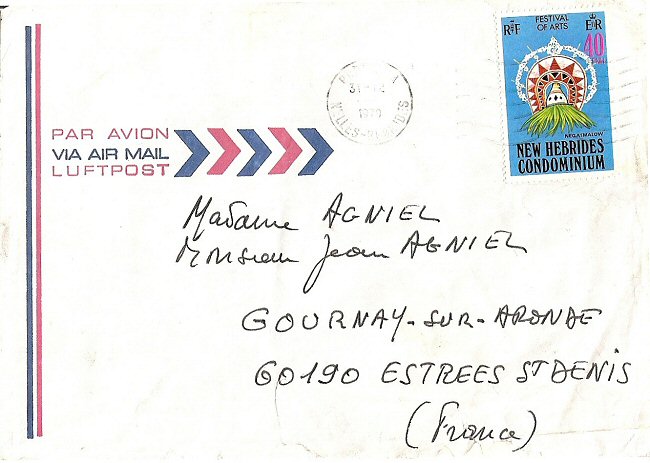 FESTIVAL
OF ARTS
RF
EIIR
40
NEGA(MALOW)
NEW HEBRIDES
CONDOMINIUM
1979
PAR AVION
VIA AIR MAIL
LUFTPOST
Madame AGNIEL
Monsieur Jean AGNIEL
GOURNAY-SUR-ARONDE
60190 ESTREES ST DENIS
(France)